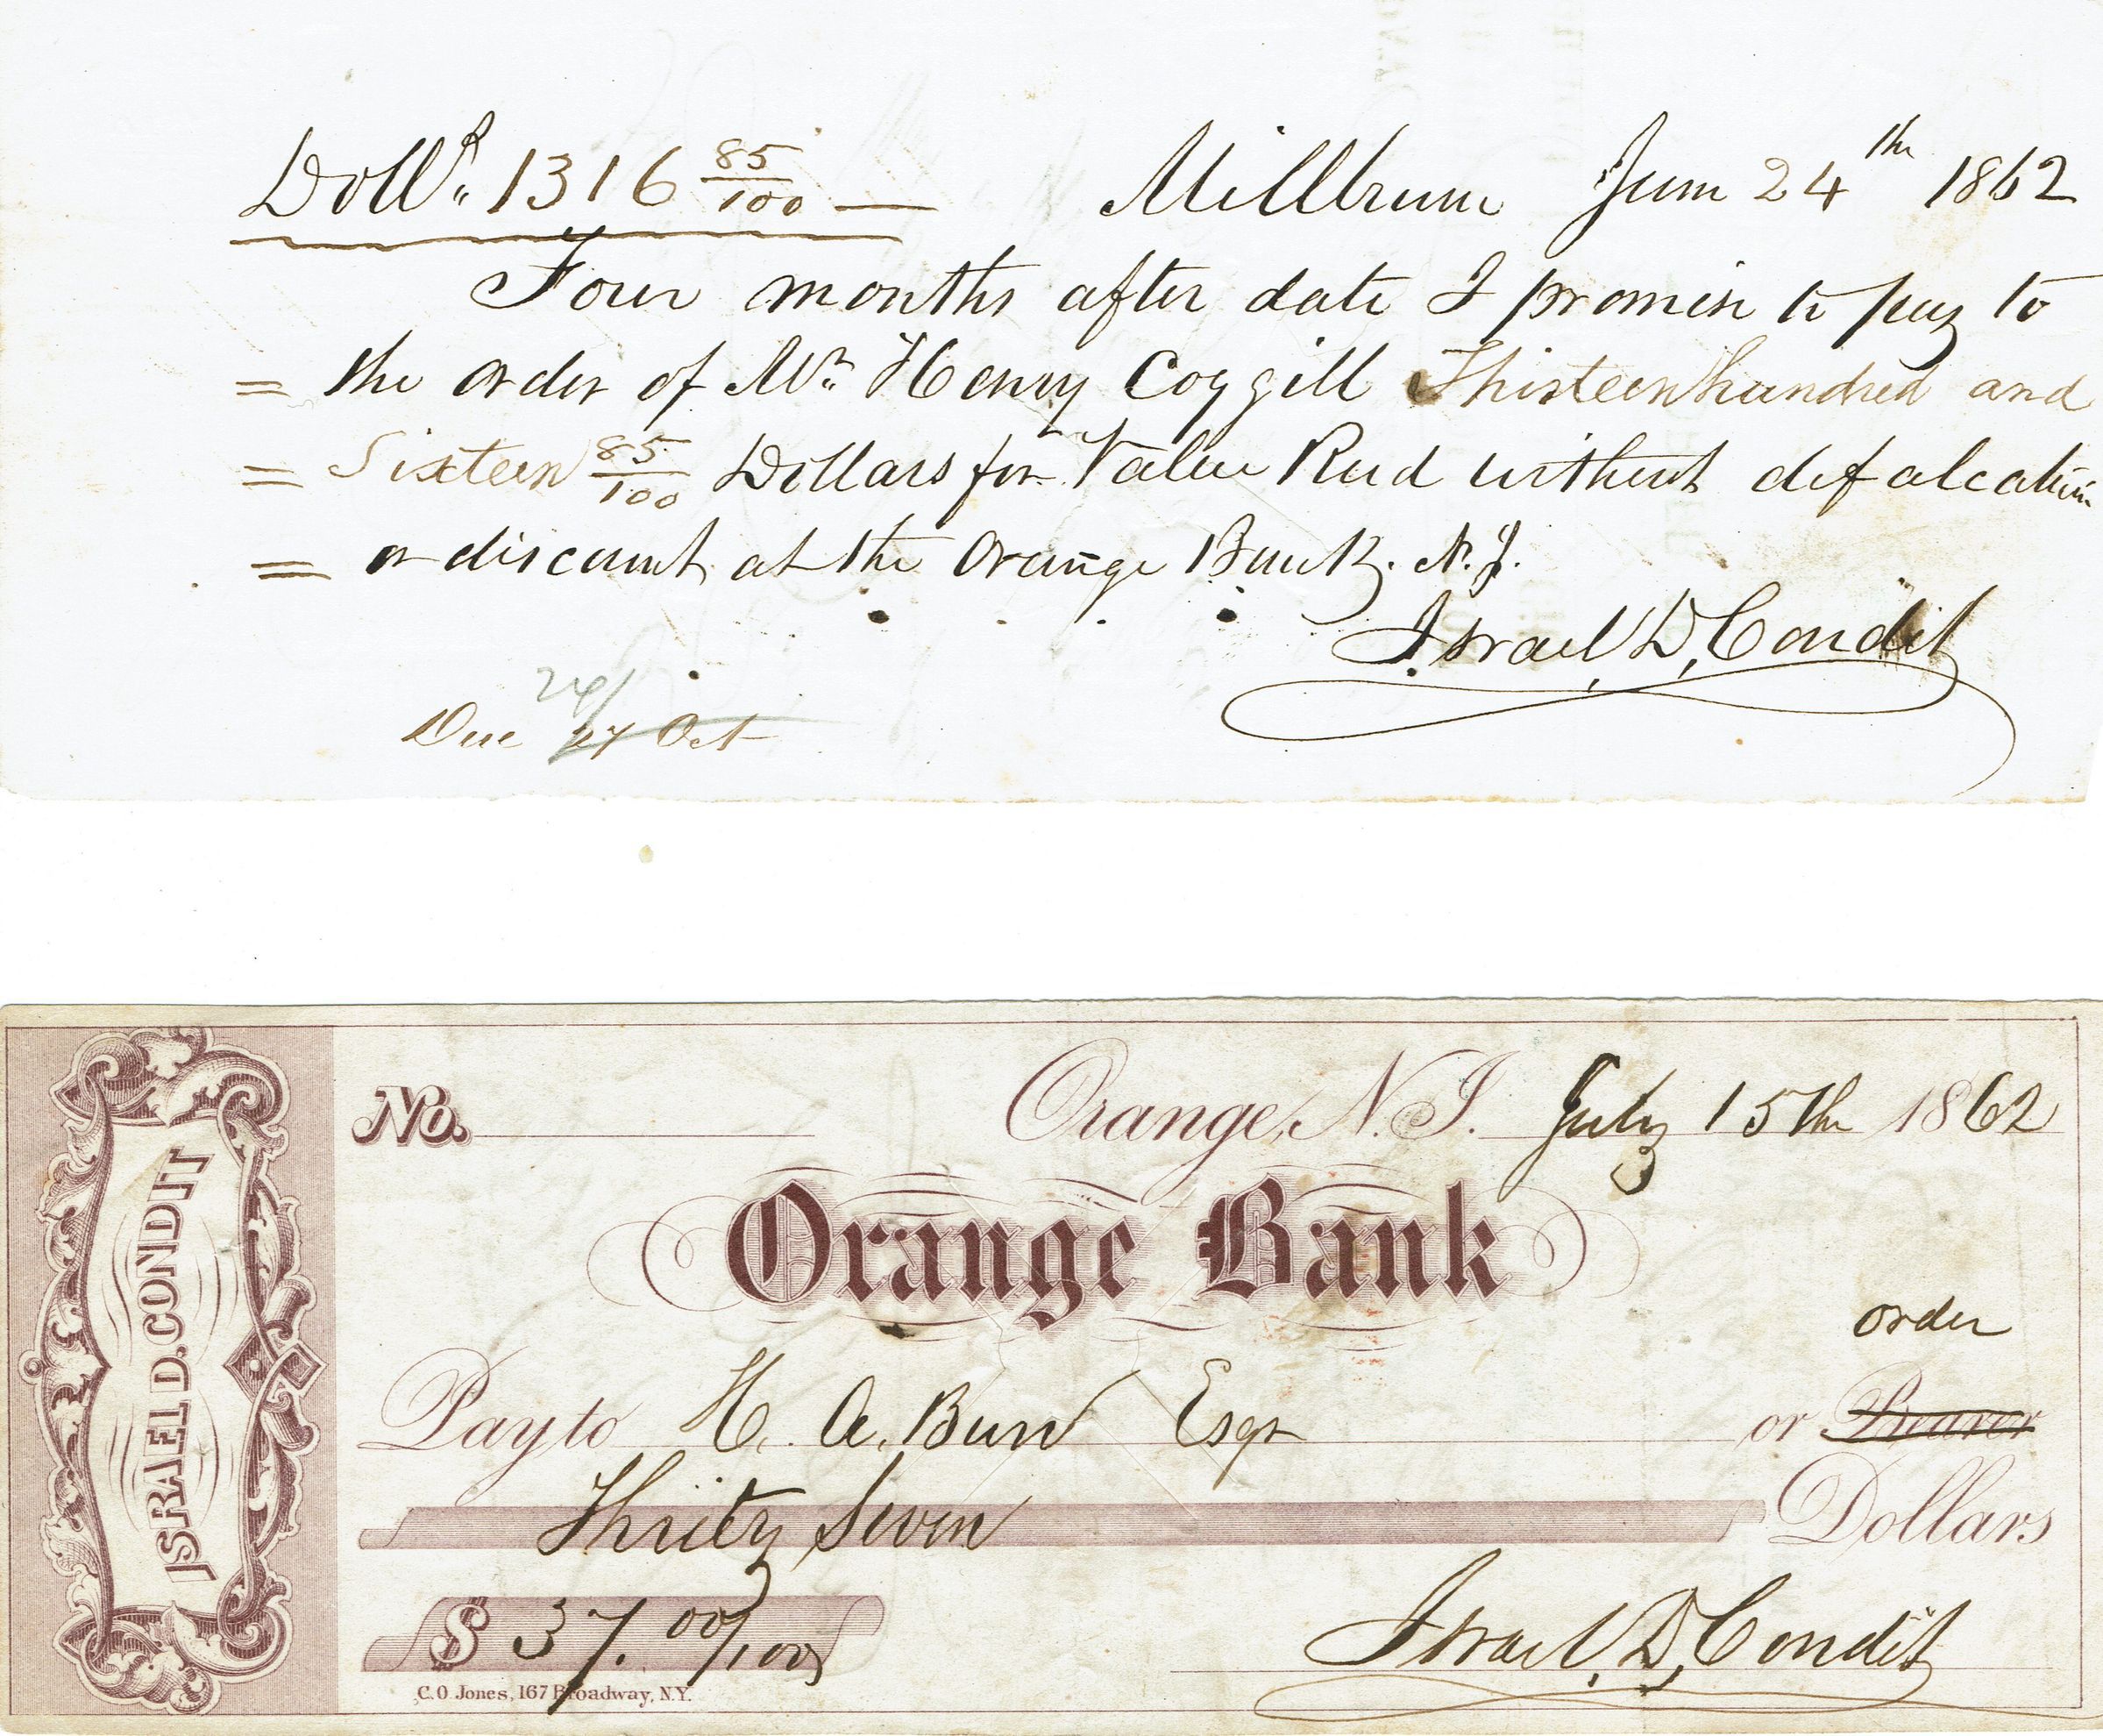 Dollrs. 1316 85/100 — Millburn June 24th 1862
Four months after date I promise to pay to
= the order of Mr. Henry Coggill Thirteen hundred and
= Sixteen 85/100 Dollars for Value Recd without defalcation
= or discount at the Orange Bank. N.J.
Israel D. Condit
24/
Due 27 Oct
ISRAEL D. CONDIT
No. Orange, N.J. July 15th 1862
Orange Bank
order
Pay to H. A. Burr Esqr or Bearer
Thirty Seven Dollars
$ 37.00/100
Israel D. Condit
C. O. Jones, 167 Broadway, N.Y.